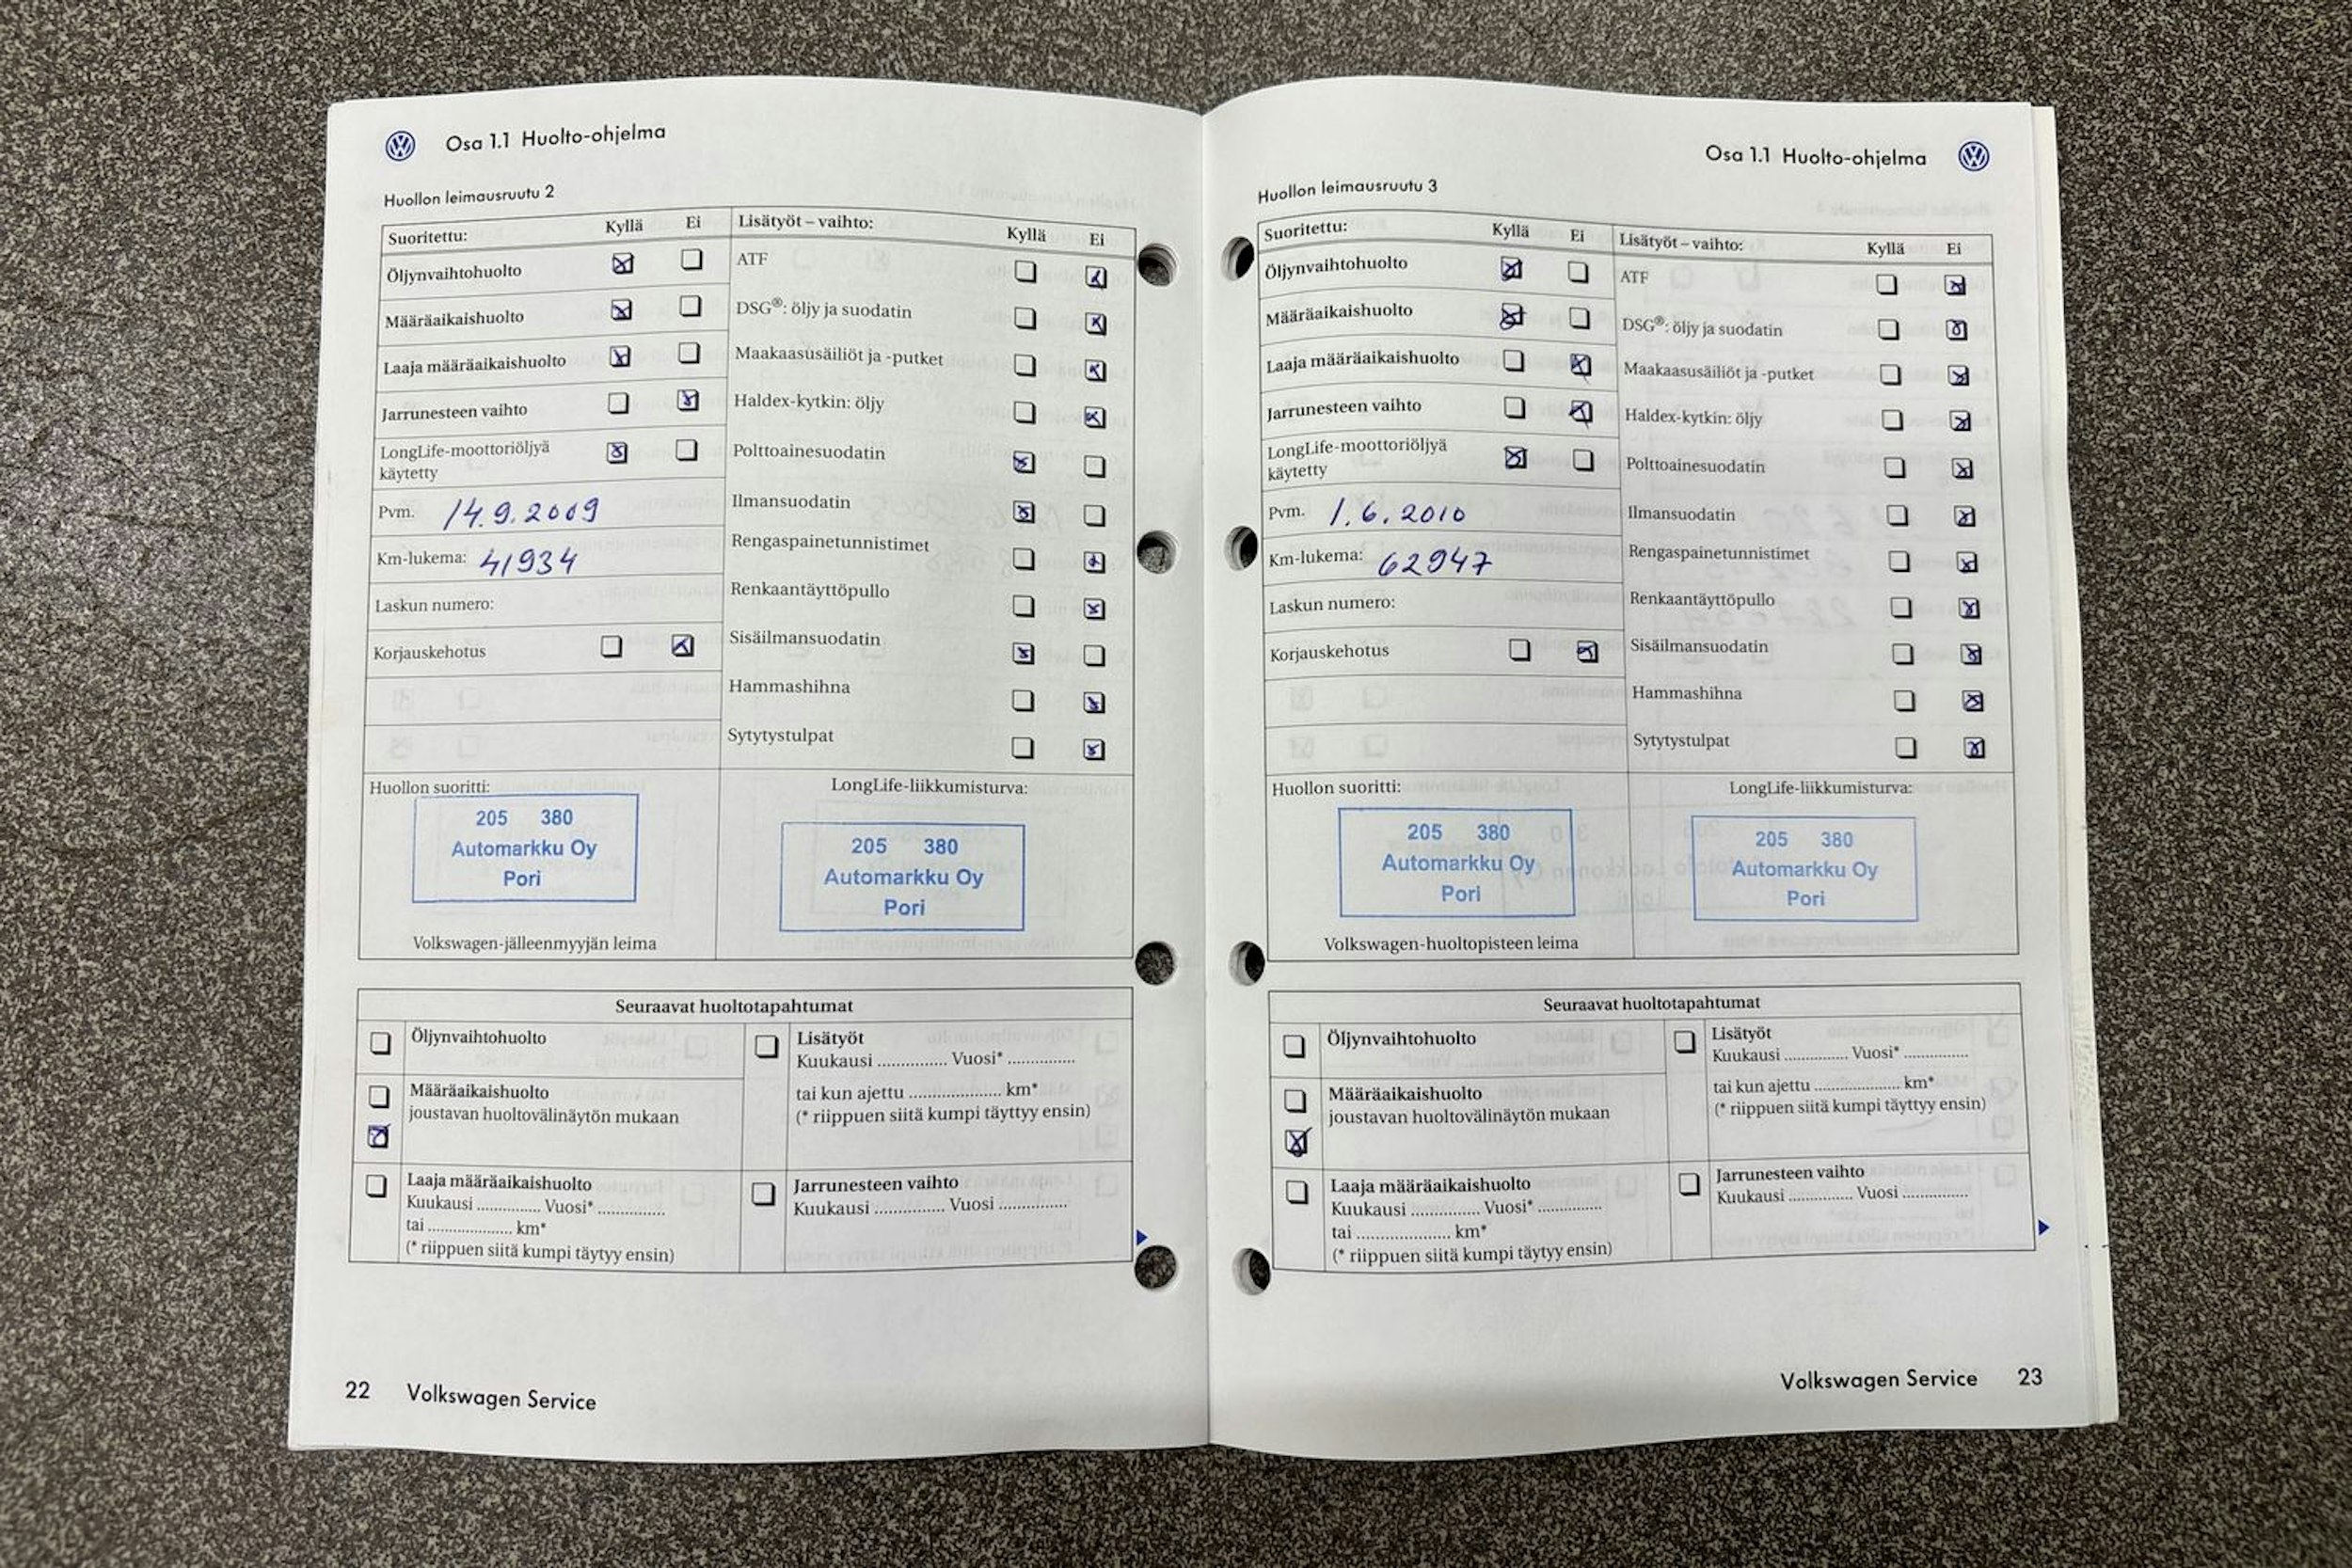 Osa 1.1 Huolto-ohjelma
Huollon leimausruutu 2
Suoritettu: Kyllä Ei
Öljynvaihtohuolto
Määräaikaishuolto
Laaja määräaikaishuolto
Jarrunesteen vaihto
LongLife-moottoriöljyä
käytetty
Pvm. 14.9.2009
Km-lukema: 41934
Laskun numero:
Korjauskehotus
Lisätyöt – vaihto: Kyllä Ei
ATF
DSG®: öljy ja suodatin
Maakaasusäiliöt ja -putket
Haldex-kytkin: öljy
Polttoainesuodatin
Ilmansuodatin
Rengaspainetunnistimet
Renkaantäyttöpullo
Sisäilmansuodatin
Hammashihna
Sytytystulpat
Huollon suoritti:
205 380
Automarkku Oy
Pori
Volkswagen-jälleenmyyjän leima
LongLife-liikkumisturva:
205 380
Automarkku Oy
Pori
Seuraavat huoltotapahtumat
Öljynvaihtohuolto
Määräaikaishuolto
joustavan huoltovälinäytön mukaan
Laaja määräaikaishuolto
Kuukausi .............. Vuosi* ..............
tai .................. km*
(* riippuen siitä kumpi täytyy ensin)
Lisätyöt
Kuukausi .............. Vuosi* ..............
tai kun ajettu ................... km*
(* riippuen siitä kumpi täyttyy ensin)
Jarrunesteen vaihto
Kuukausi .............. Vuosi ..............
22 Volkswagen Service
Osa 1.1 Huolto-ohjelma
Huollon leimausruutu 3
Suoritettu: Kyllä Ei
Öljynvaihtohuolto
Määräaikaishuolto
Laaja määräaikaishuolto
Jarrunesteen vaihto
LongLife-moottoriöljyä
käytetty
Pvm. 1.6.2010
Km-lukema: 62947
Laskun numero:
Korjauskehotus
Lisätyöt – vaihto: Kyllä Ei
ATF
DSG®: öljy ja suodatin
Maakaasusäiliöt ja -putket
Haldex-kytkin: öljy
Polttoainesuodatin
Ilmansuodatin
Rengaspainetunnistimet
Renkaantäyttöpullo
Sisäilmansuodatin
Hammashihna
Sytytystulpat
Huollon suoritti:
205 380
Automarkku Oy
Pori
Volkswagen-huoltopisteen leima
LongLife-liikkumisturva:
205 380
Automarkku Oy
Pori
Seuraavat huoltotapahtumat
Öljynvaihtohuolto
Määräaikaishuolto
joustavan huoltovälinäytön mukaan
Laaja määräaikaishuolto
Kuukausi .............. Vuosi* ..............
tai .................... km*
(* riippuen siitä kumpi täytyy ensin)
Lisätyöt
Kuukausi .............. Vuosi* ..............
tai kun ajettu .................. km*
(* riippuen siitä kumpi täyttyy ensin)
Jarrunesteen vaihto
Kuukausi .............. Vuosi ..............
Volkswagen Service 23